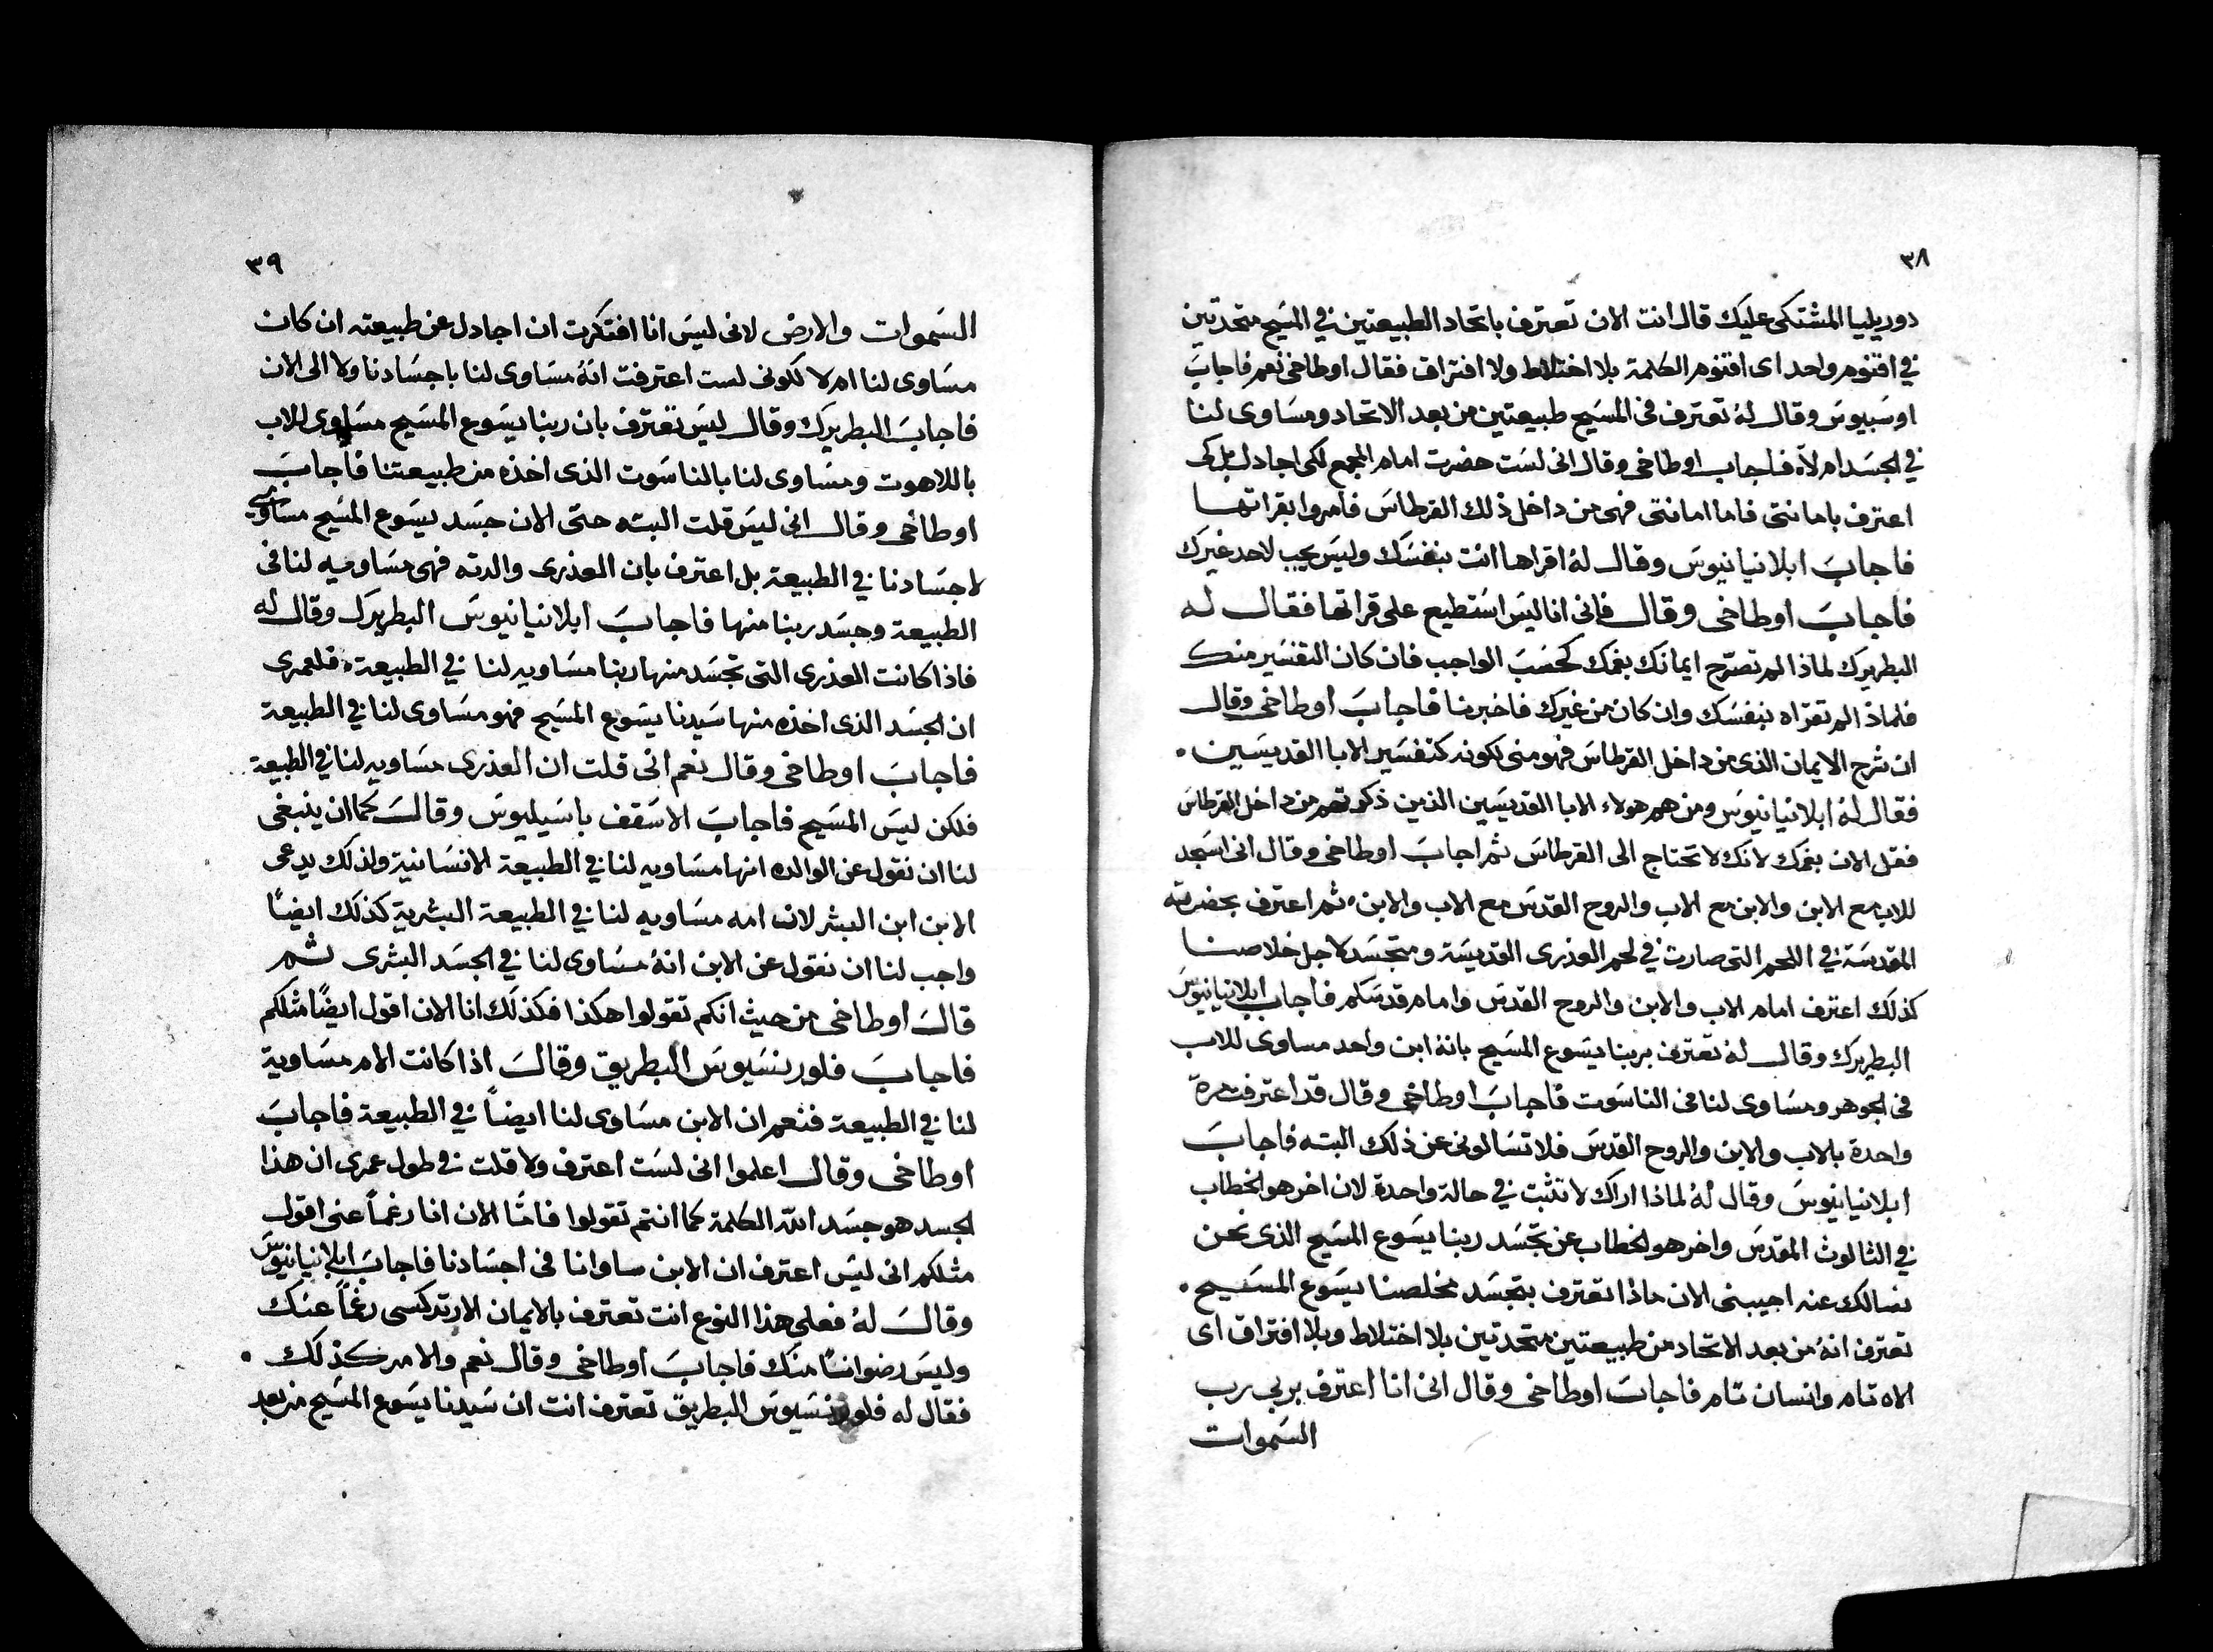 ٣٨
دوريليا المشتكى عليك قال انت الان تعترف باتحاد الطبيعتين في المسيح متحدتين
في اقنوم واحد اى اقنوم الكلمة بلا اختلاط ولا افتراق فقال اوطاخى نعم فاجابَ
اوسَبيوسَ وقال لهُ تعترف فى المسَيح طبيعتين من بعد الاتحاد ومسَاوى لنا
في الجسَد ام لاَه فاجاب اوطاخى وقال انى لسَت حضرت امام المجمع لكى اجادل بل كى
اعترف بامانتى فاما امانتى فهى من داخل ذلك القرطاسَ فامروا بقراتها
فاجابَ ابلانيانيوسَ وقال لهُ اقراها انت بنفسَك وليسَ يجب لاحد غيرك
فاجابَ اوطاخى وقال فانى انا ليسَ اسَتطيع على قراتها فقال له
البطريرَك لماذا لم تصرّح ايمانك بفمك كحسَبَ الواجب فان كان التفسَير منك
فلماذا لم تقرّاه بنفسَك وان كان من غيرك فاخبرنا فاجابَ اوطاخى وقال
ان شرح الايمان الذى من داخل القرطاسَ فهو منى لكونه كتفسَير الابا القديسَين ٠
فقال لهُ ابلانيانيوسَ ومن هم هولاء الابا القديسَين الذين ذكرتهم من داخل القرطاسَ
فقل الان بفمك لانك لا تحتاج الى القرطاسَ ثم اجابَ اوطاخى وقال انى اسَجد
للاب مع الابن والابن مع الاب والروح القدسَ مع الاب والابن٠ ثم اعترف بحضرته
المقدسَة في اللحم التى صارت في لحم العذرى القديسَة ومتجسَد لاجل خلاصنا
كذلك اعترف امام الاب والابن والروح القدسَ وامام قدسَكم فاجاب ابلانيانيوسَ
البطريرك وقال لهُ تعترف بربنا يسَوع المسَيح بانهُ ابن واحد مساوى للاب
فى الجوهر ومسَاوى لنا فى الناسَوت فاجابَ اوطاخى وقال قد اعترفت مرة
واحدة بالاب والابن والروح القدسَ فلا تسَالونى عن ذلك البته فاجابَ
ابلانيانيوسَ وقال لهُ لماذا اراك لا تثبت في حالة واحدة لان اخر هو الخطاب
في الثالوث المقدسَ واخر هو الخطاب عن تجسَد ربنا يسَوع المسَيح الذى نحن
نسالك عنه اجيبنى الان ماذا تعترف بتجسَد مخلصنا يسَوع المسَيح ٠
تعترف انهُ من بعد الاتحاد من طبيعتين متحدتين بلا اختلاط وبلا افتراق اى
الاه تام وانسان تام فاجابَ اوطاخى وقال انى انا اعترف بربى رب
السَموات
٣٩
السَموات والارض لانى ليسَ انا افتكرت ان اجادل عن طبيعته ان كان
مسَاوى لنا ام لا لكونى لست اعترفت انهُ مسَاوى لنا باجسَادنا ولا الى الان
فاجابَ البطريرَك وقال ليسَ تعترف بان ربنا يسَوع المسَيح مسَاوى للاب
باللاهوت ومسَاوى لنا بالناسَوت الذى اخذه من طبيعتنا فاجابَ
اوطاخى وقال انى ليسَ قلت البته حتى الان جسَد يسَوع المسَيح مسَاوى
لاجسَادنا في الطبيعة بل اعترف بان العذرى والدته فهى مسَاوييه لنا فى
الطبيعة وجسَد ربنا منها فاجابَ ابلانيانيوسَ البطريرَك وقال له
فاذا كانت العذرى التى تجسَد منها ربنا مسَاويه لنا في الطبيعة٠ فلعمرى
ان الجسَد الذى اخذه منها سَيدنا يسَوع المسَيح فهو مسَاوى لنا في الطبيعة
فاجابَ اوطاخى وقال نعم انى قلت ان العذرى مسَاويه لنا في الطبيعة
فلكن ليسَ المسَيح فاجابَ الاسَقف باسَيليوسَ وقالَ كما ان ينبغى
لنا ان نقول عن الوالده انها مسَاويه لنا في الطبيعة الانسَانية ولذلك يدعى
الابن ابن البشر لان امه مسَاويه لنا في الطبيعة البشرية كذلك ايضاً
واجب لنا ان نقول عن الابن انهُ مسَاوى لنا في الجسَد البشرى ثم
قالَ اوطاخى من حيث انكم تقولوا هكذا فكذلَك انا الان اقول ايضاً مثلكم
فاجابَ فلورنسَيوسَ البطريق وقالَ اذا كانت الام مسَاوية
لنا في الطبيعة فنعم ان الابن مسَاوى لنا ايضاً في الطبيعة فاجابَ
اوطاخى وقال اعلموا انى لسَت اعترف ولا قلت في طول عمرى ان هذا
الجسد هو جسَد الله الكلمة كما انتم تقولوا فامّا الان انا رغماً عنى اقول
مثلكم انى ليسَ اعترف ان الابن ساوانا فى اجسَادنا فاجابَ ابلانيانيوسَ
وقالَ لهُ فعلى هذا النوع انت تعترف بالايمان الارتدكسى رغماً عنك
وليسَ رضواناً منك فاجابَ اوطاخى وقال نعم والامر كذلك ٠
فقال له فلورنسَيوسَ البطريق تعترف انت ان سَيدنا يسَوع المسَيح من بعد